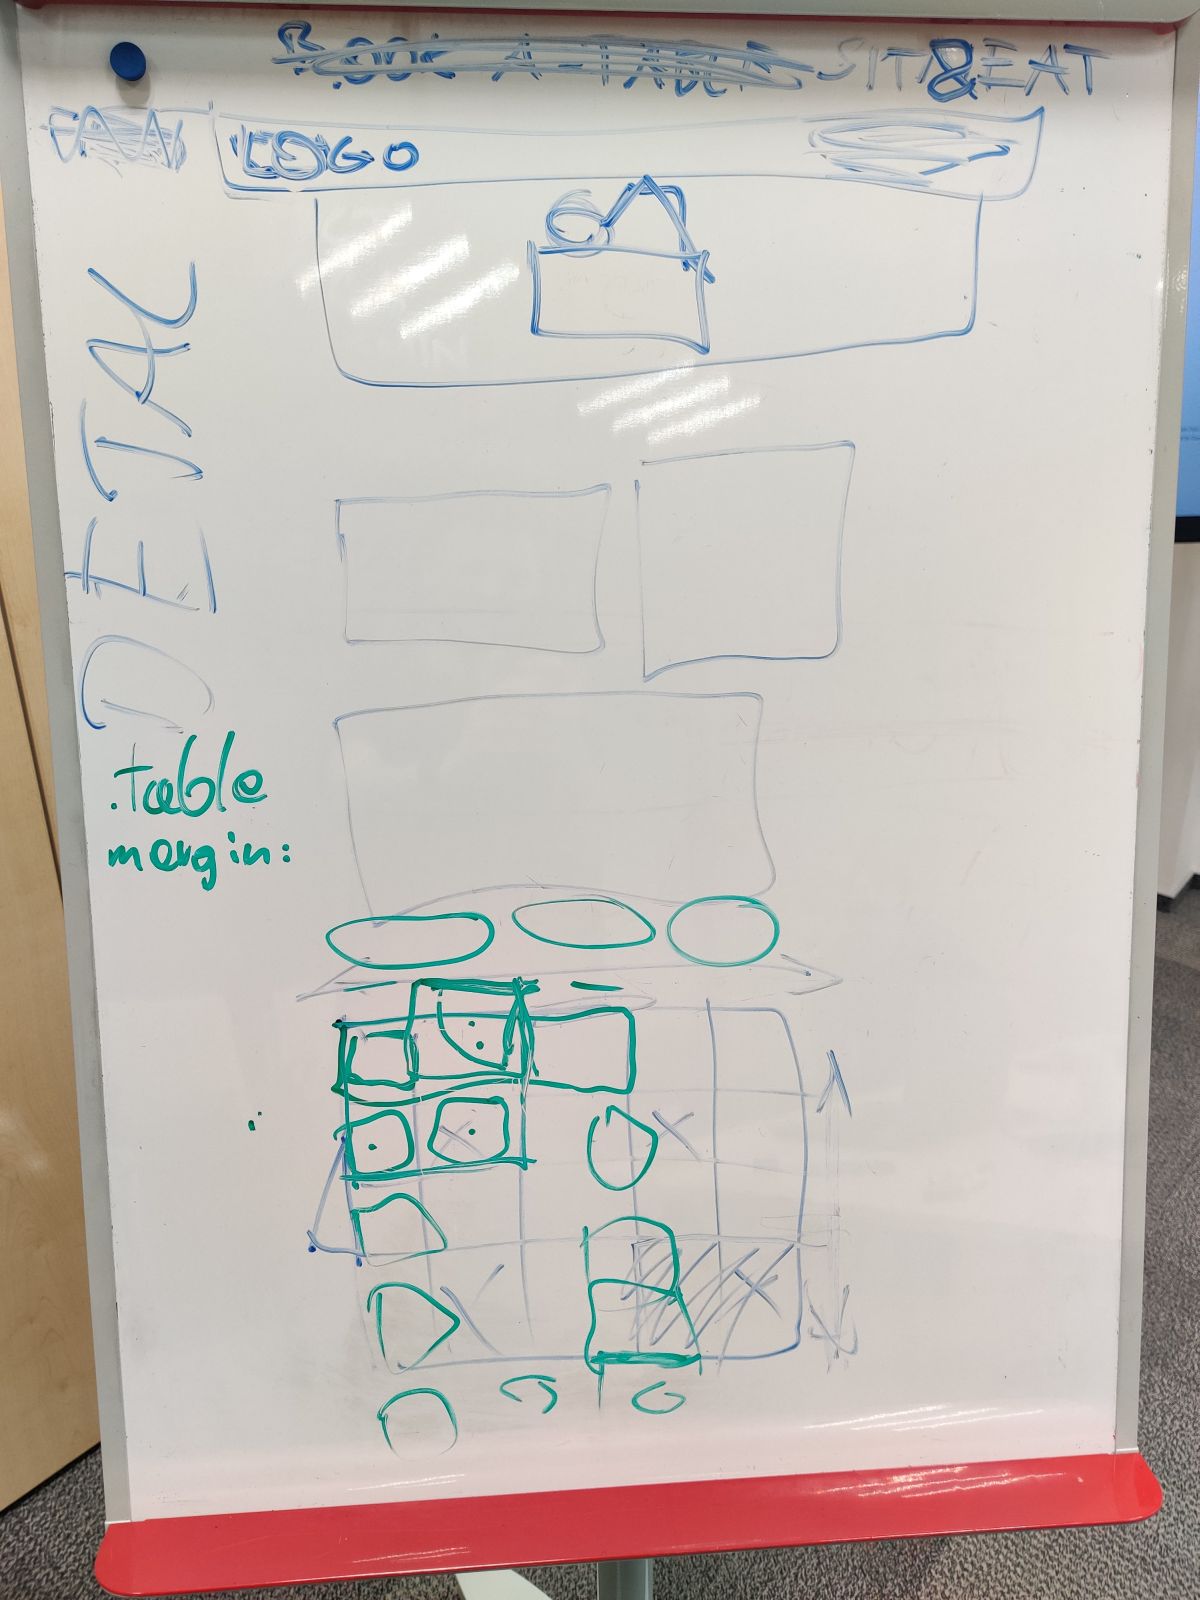 BOOK-A-TABLE SIT&EAT
LOGO
DETAIL
.table
margin: